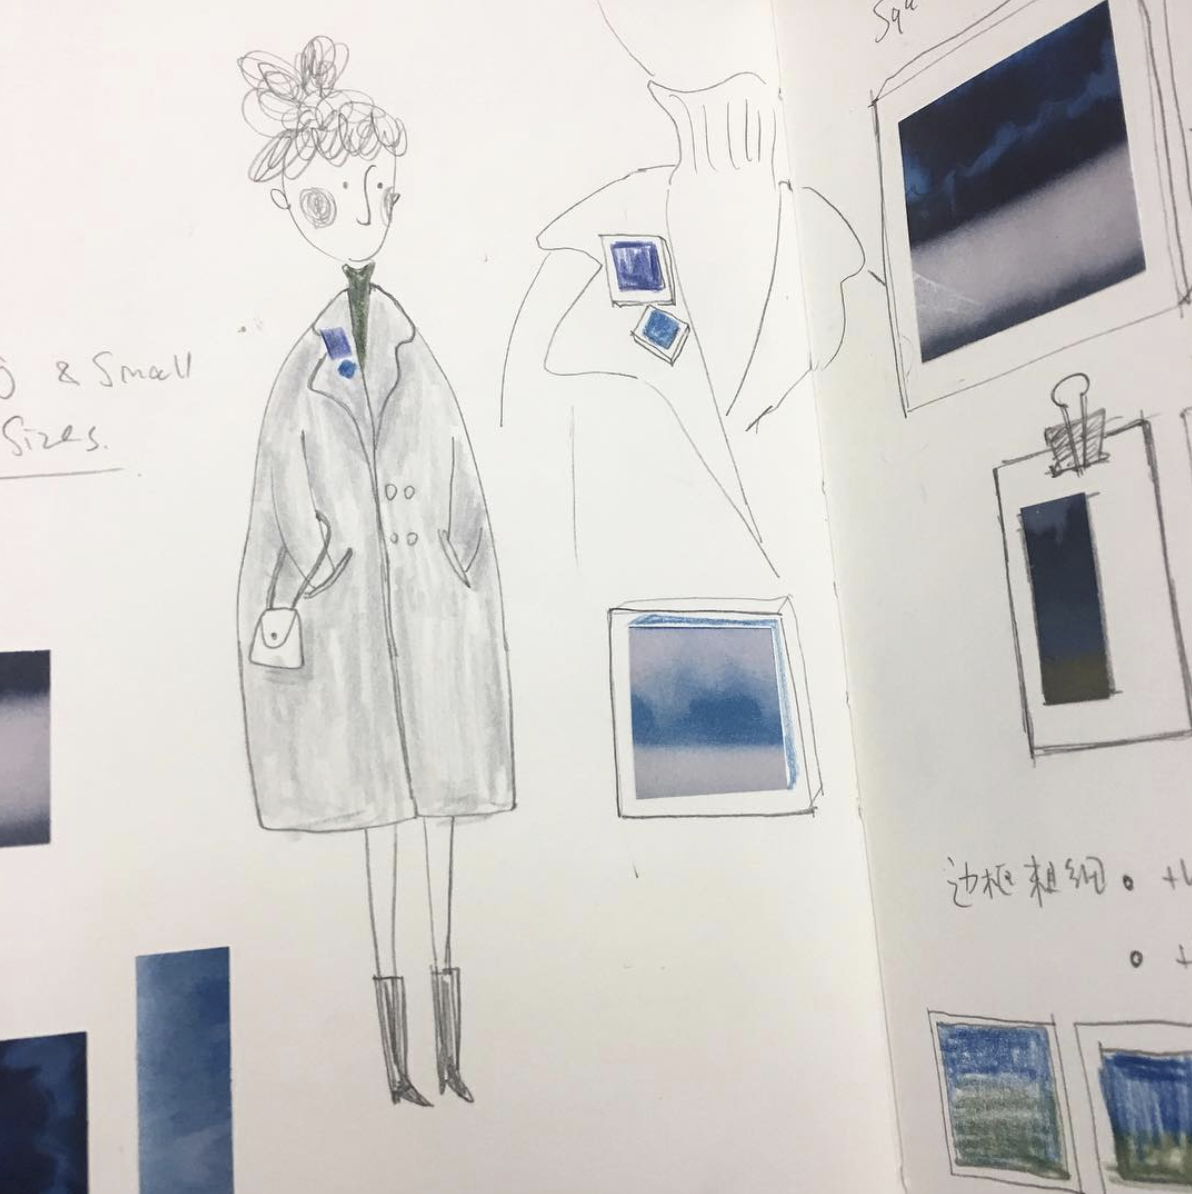 & Small
Sizes.
边框粗细